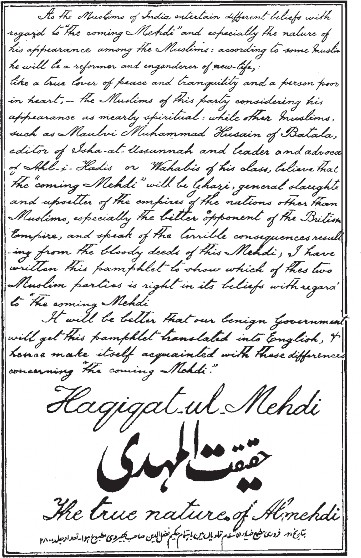 As the Muslims of India entertain different beliefs with
regard to "the coming Mehdi" and especially the nature of
his appearance among the Muslims: according to some Muslims
he will be a reformer and engenderer of new-life,
like a true lover of peace and tranquility and a person poor
in heart,— the Muslims of this party considering his
appearance as nearly spiritual: while other Muslims.
such as Maulvi Muhammad Husain of Batala,
editor of Isha-at Ussunnah and leader and advoca
of Ahl-i-Hadis or Wahabis of his class, believe that
the "coming Mehdi" will be Ghazi, general slaughte
and upsetter of the empires of the nations other than
Muslims, especially the better opponent of the British
Empire, and speak of the terrible consequences result
-ing from the bloody deeds of this Mehdi; I have
written this pamphlet to show which of thes two
Muslim parties is right in its beliefs with regard
to the coming Mehdi
It will be better that our benign Government
will get this pamphlet translated into English, &
hense make itself acquainted with these differences
concerning "the coming Mehdi."
Haqiqat-ul-Mehdi
حقیقت المہدی
The true nature of Al-mehdi